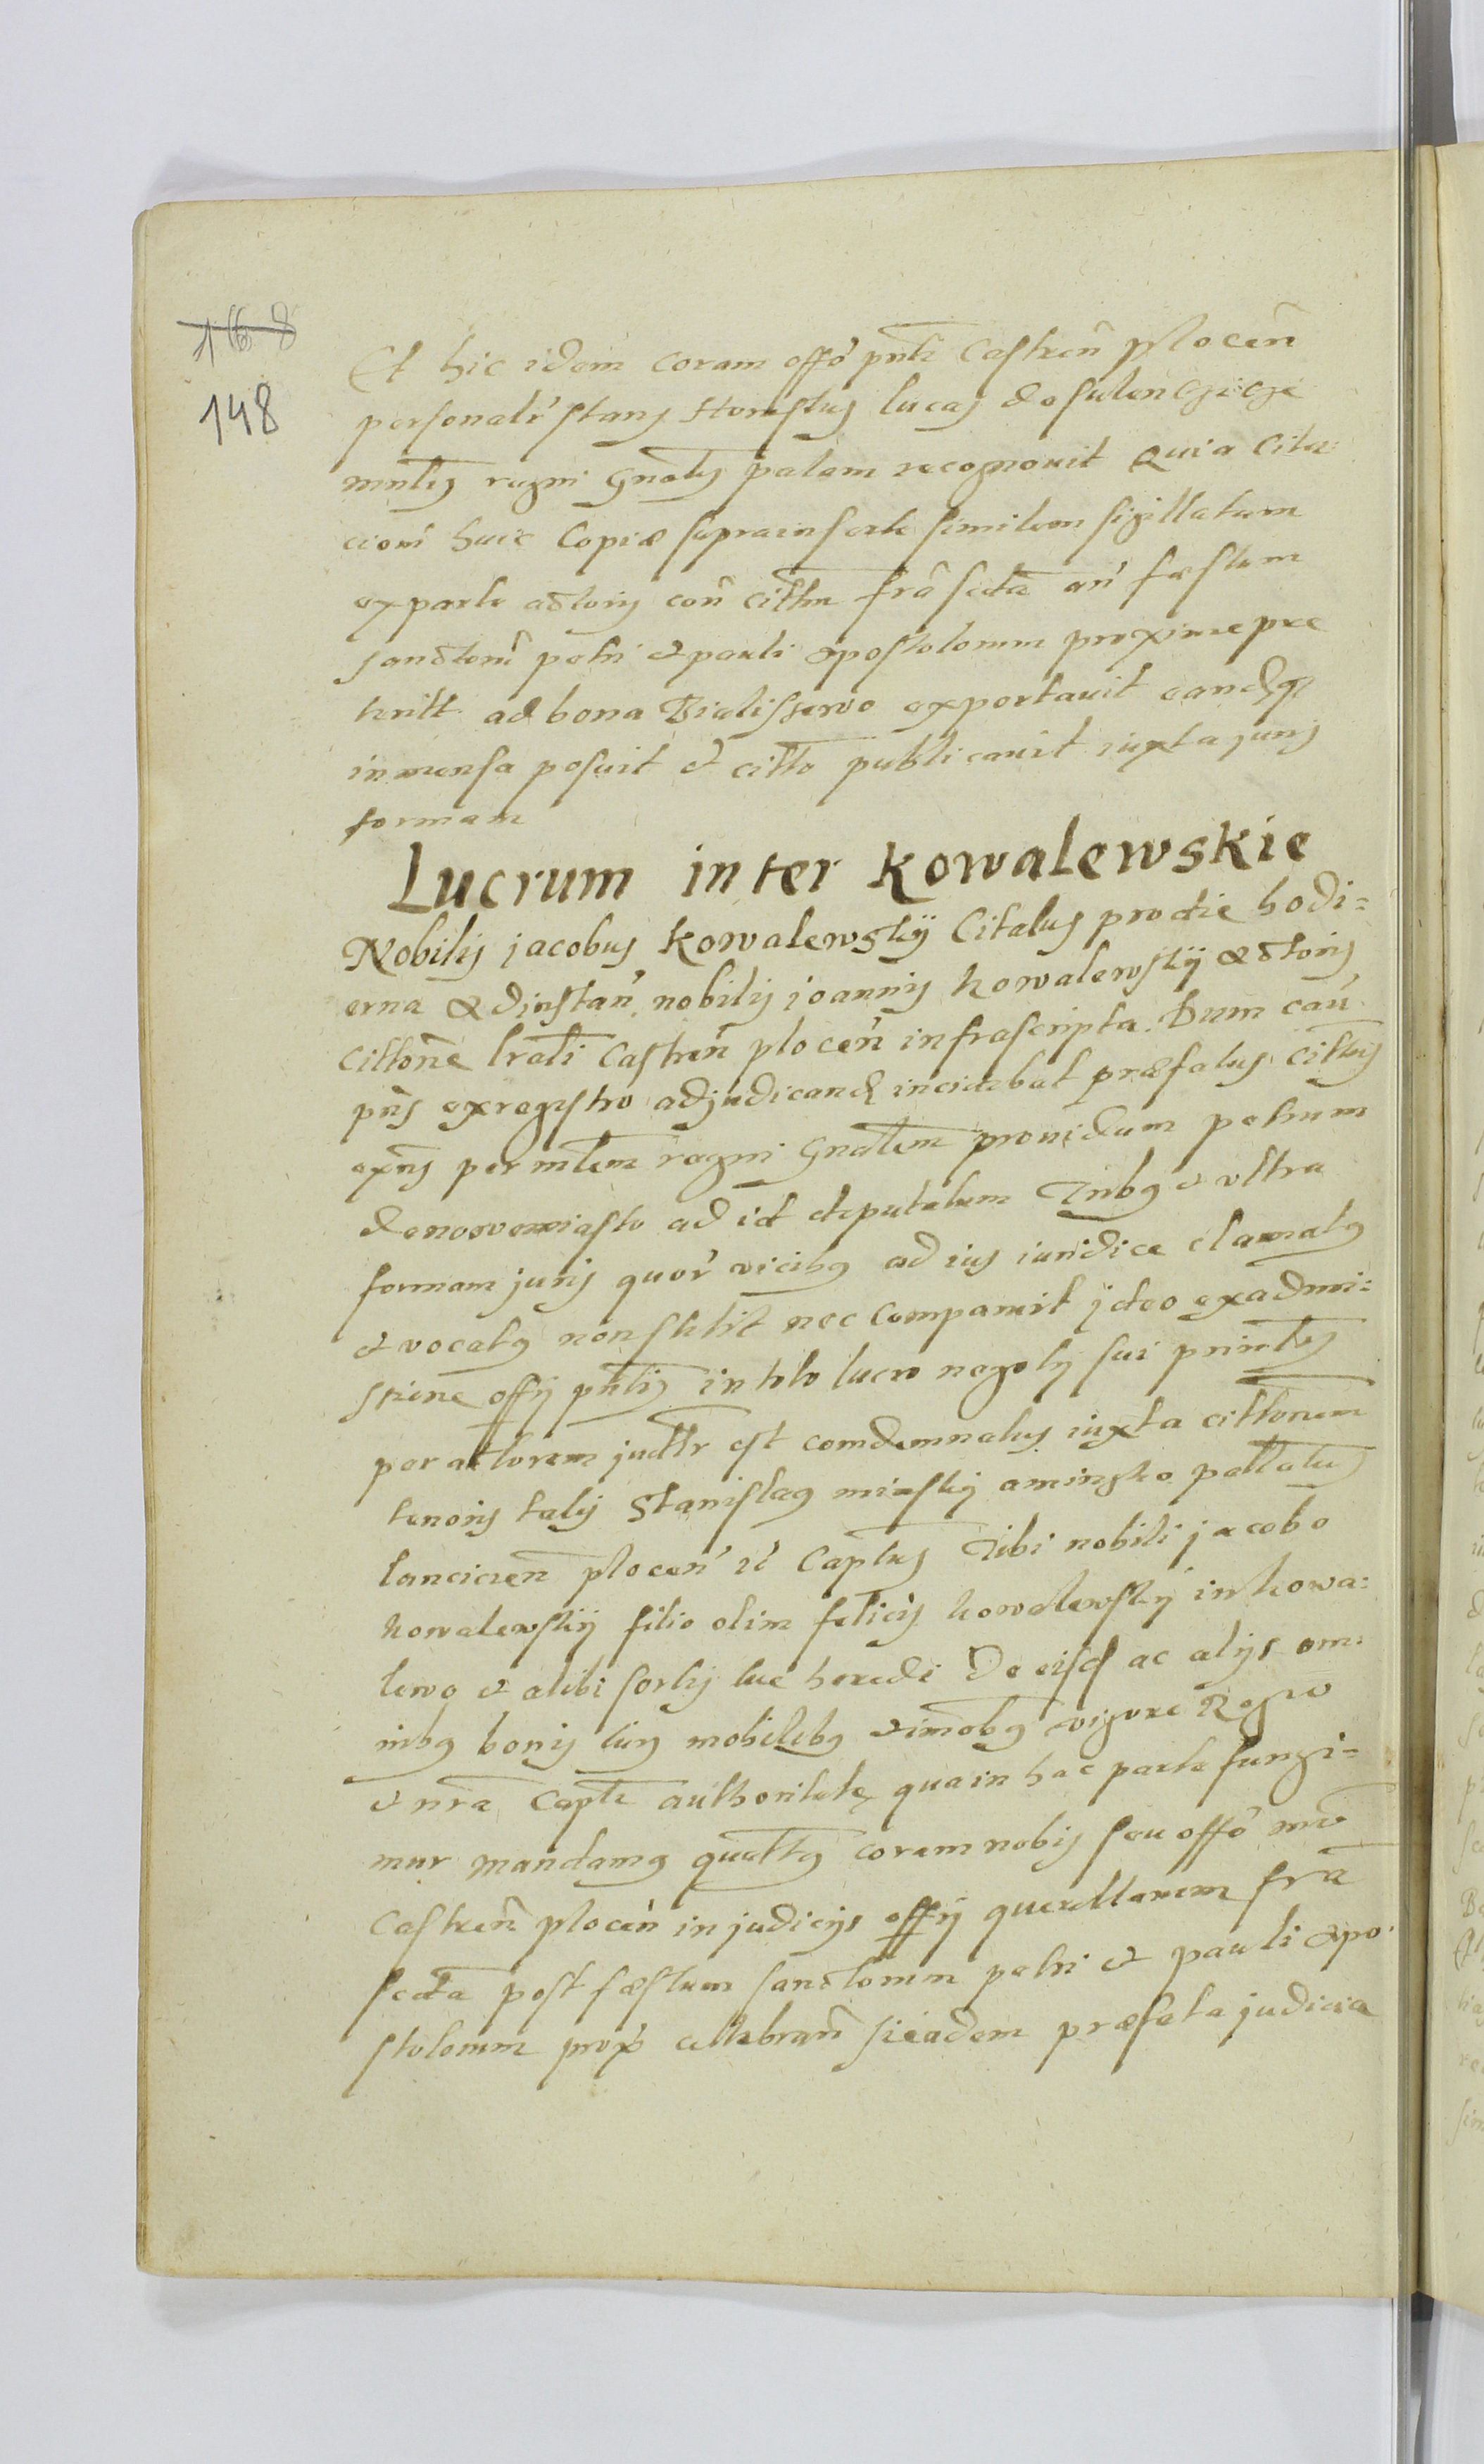 168
148
Et hic idem coram offō pn̄ti Castren̄ plocen̄
personalr̄ stans Honestus lucas de sulenczicze
mnlis regni Gn̄alis palam recognovit Quia Cita:
cionē huic Copiæ suprainserte similem sigillatam
ex parte actoris con̄ cittm̄ fr̄a sexta an̄ fæstum
sanctorū petri et pauli apostolorum proxime pre
teritt ad bona Bialissewo exportavit eandq̧
in mensa posuit et citto publicavit iuxta juris
formam
Lucrum inter Kowalewskie
Nobilis jacobus Kowalewskij Citatus pro die hodi=
erna ad instan̄ nobilis joannis kowalewskij actoris
cittone lrali Castren̄ plocen̄ infrascripta. Dum cau̅
pn̄s ex regestro adjudicand incidebat præfatus cittus
exn̄s per mlem̄ regni Gn̄alem providum petrum
de novemiasto ad id deputatum Tribq et ultra
formam juris quor̄ vicibq ad ius iuridice clamatq
et vocatq non stetit nec Comparuit ideo ex admi=
strene offij pn̄tis in toto lucro negotij sui prin̄tis
per actorem judltr est comdemnatus iuxta cittonem
tenoris talis Stanislaq minskij a minsko pallatus
lanciciren̄ plocen̄ zc̄ Captus Tibi nobili jacobo
kowalewskij filio olim felicis kowalewskij in kowa:
lewo et alibi sortis tue heredi De eisd ac alijs om:
nibq bonis tuis mobilibq et imobq vigore Regro
et nr̄a Capli authoritate qua in hac parte fungi=
mur mandamq quattq coram nobis seu offō nr̄o
Castren̄ plocen̄ in judicijs offij querellarum fr̄a
sexta post fæstum sanctorum petri et pauli apo:
stolorum prox̄ cellebran̄ si eadem præfata judicia